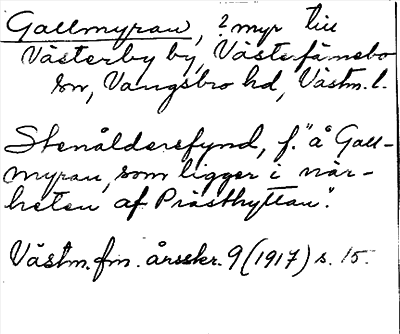 Gallmyran, ? myr till
Västerby by, Västerfärnebo
sn, Vangsbro hd, Västm. l.
Stenåldersfynd, f. "å Gall-
myran, som ligger i när-
heten af Prästhyttan".
Västm. fm. årsskr. 9 (1917) s. 15.